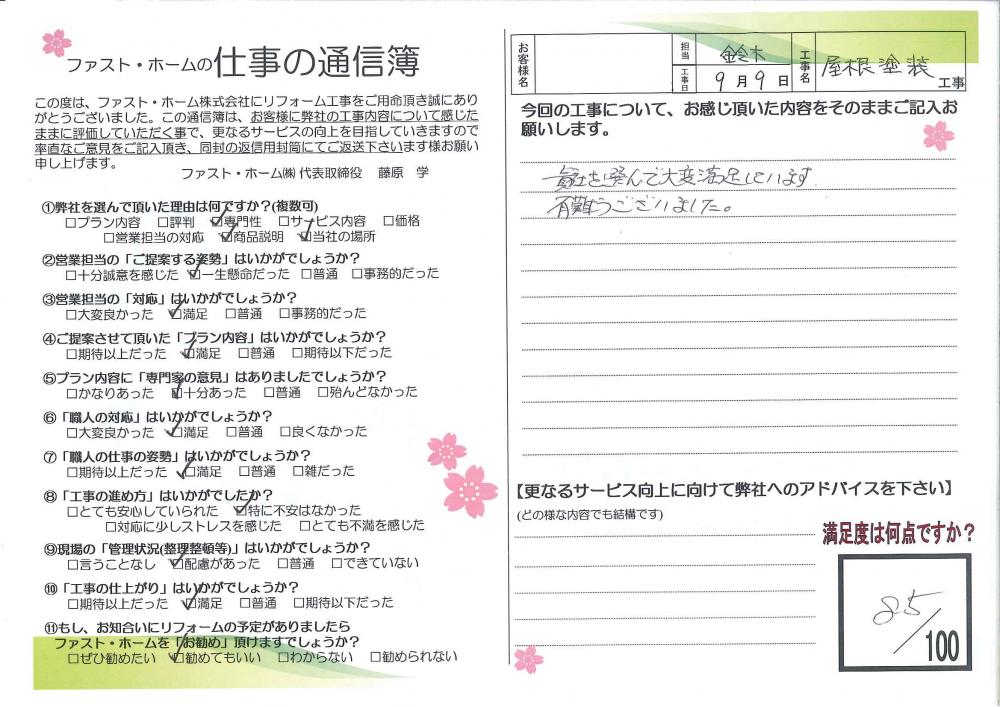 ファスト・ホームの仕事の通信簿
この度は、ファスト・ホーム株式会社にリフォーム工事をご用命頂き誠にあり
がとうございました。この通信簿は、お客様に弊社の工事内容について感じた
ままに評価していただく事で、更なるサービスの向上を目指していきますので
率直なご意見をご記入頂き、同封の返信用封筒にてご返送下さいます様お願い
申し上げます。
ファスト・ホーム㈱ 代表取締役 藤原 学
①弊社を選んで頂いた理由は何ですか?(複数可)
□プラン内容 □評判 ☑専門性 □サービス内容 □価格
□営業担当の対応 ☑商品説明 ☑当社の場所
②営業担当の「ご提案する姿勢」はいかがでしょうか?
□十分誠意を感じた ☑一生懸命だった □普通 □事務的だった
③営業担当の「対応」はいかがでしょうか?
□大変良かった ☑満足 □普通 □事務的だった
④ご提案させて頂いた「プラン内容」はいかがでしょうか?
□期待以上だった ☑満足 □普通 □期待以下だった
⑤プラン内容に「専門家の意見」はありましたでしょうか?
□かなりあった ☑十分あった □普通 □殆んどなかった
⑥「職人の対応」はいかがでしょうか?
□大変良かった ☑満足 □普通 □良くなかった
⑦「職人の仕事の姿勢」はいかがでしょうか?
□期待以上だった ☑満足 □普通 □雑だった
⑧「工事の進め方」はいかがでしたか?
□とても安心していられた ☑特に不安はなかった
□対応に少しストレスを感じた □とても不満を感じた
⑨現場の「管理状況(整理整頓等)」はいかがでしょうか?
□言うことなし ☑配慮があった □普通 □できていない
⑩「工事の仕上がり」はいかがでしょうか?
□期待以上だった ☑満足 □普通 □期待以下だった
⑪もし、お知合いにリフォームの予定がありましたら
ファスト・ホームを「お勧め」頂けますでしょうか?
□ぜひ勧めたい ☑勧めてもいい □わからない □勧められない
お客様名
担当 鈴木
工事日 9月9日
工事名 屋根塗装 工事
今回の工事について、お感じ頂いた内容をそのままご記入お
願いします。
貴社を選んで大変満足しています
有難うございました。
【更なるサービス向上に向けて弊社へのアドバイスを下さい】
(どの様な内容でも結構です)
満足度は何点ですか?
85/100